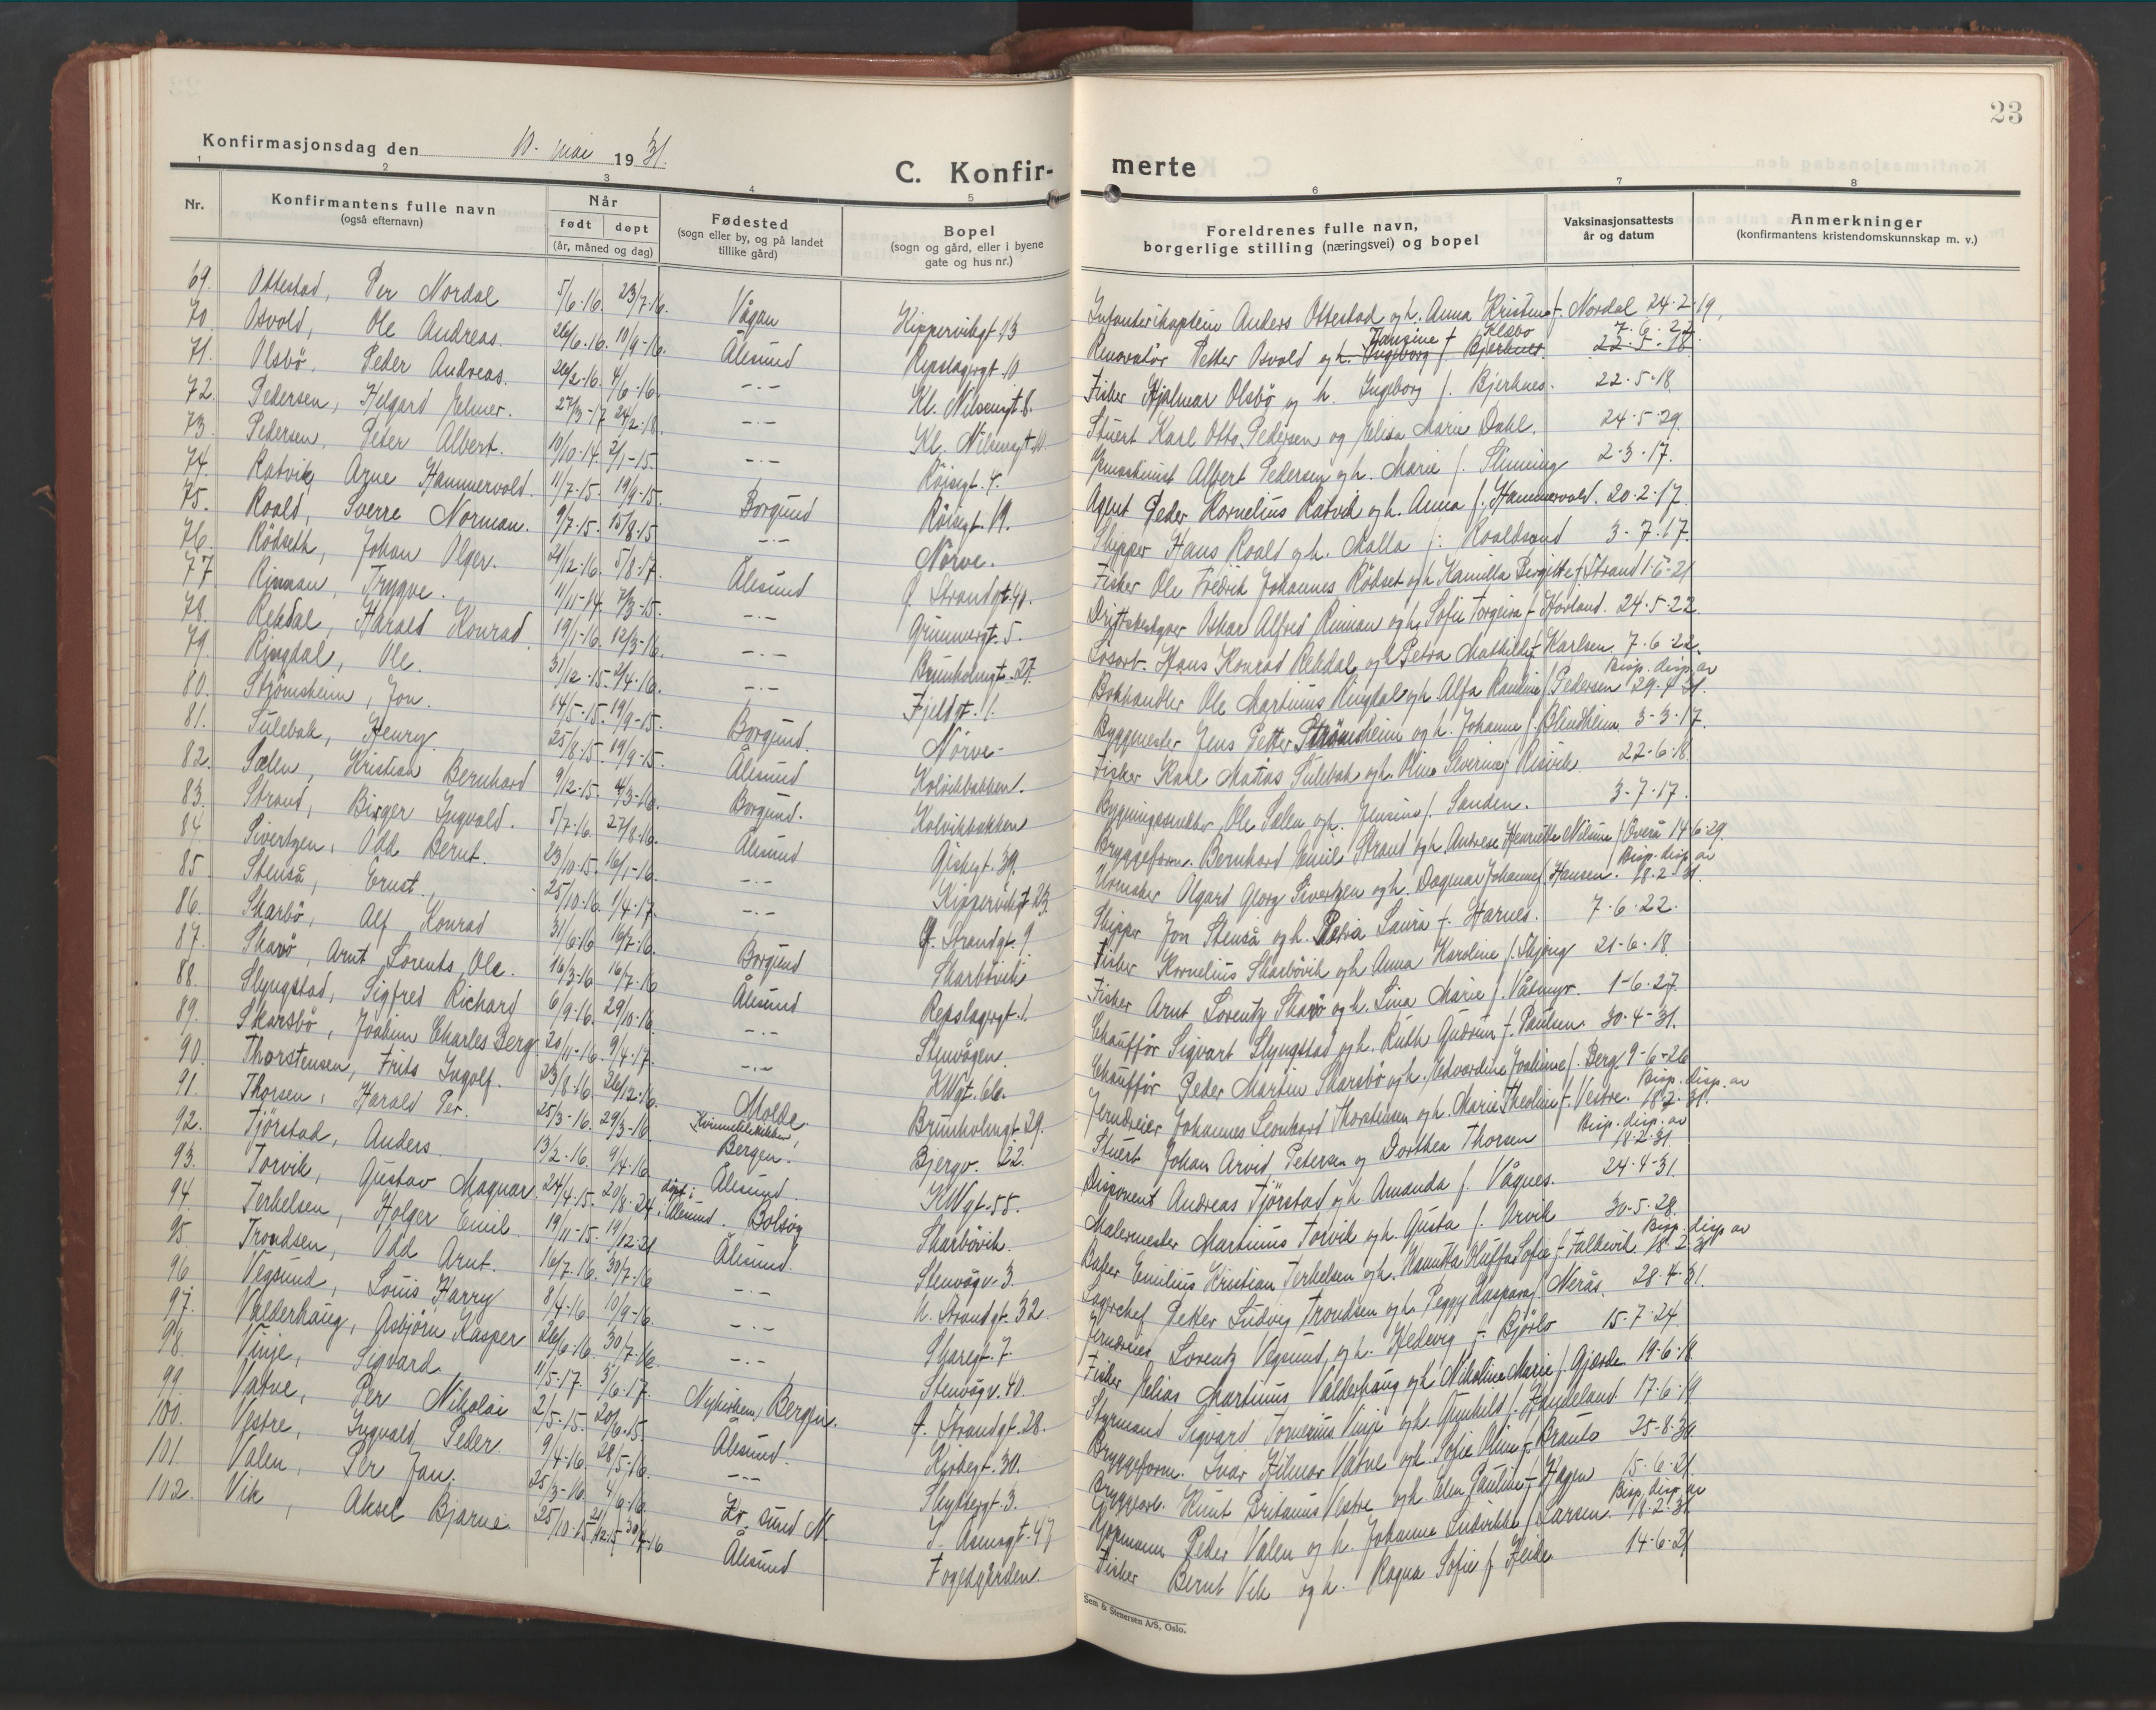 23
Konfirmasjonsdag den 10. mai 1931.
C. Konfirmerte
1 2 3 4 5 6 7 8
Nr. Konfirmantens fulle navn (også efternavn) Når født døpt (år, måned og dag) Fødested (sogn eller by, og på landet tillike gård) Bopel (sogn og gård, eller i byene gate og hus nr.) Foreldrenes fulle navn, borgerlige stilling (næringsvei) og bopel Vaksinasjonsattests år og datum Anmerkninger (konfirmantens kristendomskunnskap m. v.)
69. Ottestad, Per Nordal 5/6-16. 23/7-16. Vågan Kippervikgt. 43 Infanterikaptein Anders Ottestad og h. Anna Kristine f. Nordal 24-2-19.
70. Osvold, Ole Andreas. 26/6-16. 10/9-16. Ålesund Repslagergt. 10 Renovatör Petter Osvold og h. Ingeborg f. Bjerknes. Hansine f. Klesbö 22-5-18 7-6-22.
71. Olsbö, Peder Andreas. 26/2-16. 4/6-16. -.- Kl. Nilsengt. 8. Fisker Hjalmar Olsbö og h. Ingeborg f. Bjerknes. 22-5-18.
72. Pedersen, Helgard Helmer. 27/3-17 24/2-18. -.- Kl. Nilsengt. 11. Stuert Karl Otto Pedersen og Elisa Marie Dahl. 24-5-29.
73. Pedersen, Peter Albert. 10/10-14. 2/1-15. -.- Röisgt. 4. Albert Pedersen og h. Marie f. Slinning 2-3-17.
74. Ratvik, Arne Hammervold. 11/7-15. 19/9-15. Borgund Röisgt. 19. Agent Peder Kornelius Ratvik og h. Anna f. Hammervold. 20-2-17.
75. Roald, Sverre Norman. 9/7-15. 15/8-15 -.- Nörve. Skipper Hans Roald og h. Malla f. Roaldsand 3-7-17.
76. Rödseth, Johan Olger. 21/12-16. 5/8-17. Ålesund Strandgt. 40. Fisker Ole Fredrik Johannes Rödset og h. Kamilla Bergitte f. Strand 1-6-21
77. Rinnan, Trygve. 11/11-14. 7/3-15. -.- Grimmergt. 5. Driftsbestyrer Oskar Alfred Rinnan og h. Sofie Torgeira f. Hovland. 24-5-22.
78. Rekdal, Harald Konrad. 19/1-16. 12/3-16. -.- Brunholmgt. 27. Hans Konrad Rekdal og h. Petra Mathilde f. Karlsen. 7-6-22.
79. Ringdal, Ole. 31/12-15. 2/4-16. -.- Fjeldgt. 1. Bokhandler Ole Martinus Ringdal og h. Alfa Randine f. Pedersen Bisp. disp. av 29-4-31.
80. Strömsheim, Jon. 14/5-15. 19/9-15. Borgund. Nörve- Byggmester Jens Petter Strömsheim og h. Johanne f. Blindheim 3-3-17.
81. Tulebak, Henry. 25/8-15. 19/9-15. Ålesund Kolvikbakken. Fisker Karl Matias Tulebak og h. Oline Severine f. Risvik 22-6-18.
82. Sælen, Kristian Bernhard 9/12-15. 4/3-16. Borgund. Kolvikbakken Bygningssnekker Ole Sælen og h. Jensine f. Sanden. 3-7-17.
83. Strand, Birger Ingvald. 5/7-16. 27/8-16. Ålesund Giskegt. 39. Bryggeform. Bernhard Emil Strand og h. Andrese Henriette Nilsine f. Överå 14-6-29.
84. Sivertzen, Odd Bernt. 23/10-15. 16/1-16. -.- Kippervikgt 23. Urmaker Algard Georg Sivertzen og h. Dagmar Johanne f. Hansen. Bisp. disp. av 18-2-31.
85. Stenså, Ernst. 25/10-16. 1/4-17. -.- Strandgt. 9. Skipper Jon Stenså og h. Petra Laura f. Harnes. 7-6-22.
86. Skarbö, Alf Konrad 3/6-16 16/7-16. Borgund Skarbövik Fisker Kornelius Skarbövik og h. Anna Karoline f. Skjong 21-6-18.
87. Skarö, Arnt Lorents Ole. 16/3-16 16/7-16 Ålesund Repslagergt. 1. Fisker Arnt Lorentz Skarö og h. Lina Marie f. Våtmyr. 1-6-27.
88. Slyngstad, Sigfred Richard 6/9-16. 29/10-16. -.- Stenvågen. Chaufför Sigvart Slyngstad og h. Ruth Gudrun f. Paulsen. 30-4-31.
89. Skarsbö, Joakim Charles Berg. 20/11-16. 9/4-17. -.- KWgt. 66. Chaufför Peder Martin Skarsbö og h. Edvardine Joakime f. Berg 9-6-26
90. Thorstensen, Frits Ingolf. 23/8-16. 26/12-16. Molde. Brunholmgt 29. Jerndreier Johannes Leonhard Thorstensen og h. Marie Theoline f. Vestre. Bisp. disp. av 18-2-31.
91. Thorsen, Harald Per. 25/3-16. 29/3-16 Kvinneklinikken, Bergen. Bjergv. 22. Stuert Johan Arvid Petersen og Dorthea Thorsen Bisp. disp. av 18-2-31.
92. Tjörstad, Anders. 13/2-16. 9/4-16 Ålesund. KWgt-55. Disponent Andreas Tjörstad og h. Amanda f. Vågnes. 24-4-31.
93. Torvik, Gustav Magnar. 24/4-15. 20/8-24. döpt i Ålesund. Bolsöy Skarbövik. Malermester Martinus Torvik og h. Gusta f. Arvik 30-5-28.
94. Terkelsen, Holger Emil. 19/11-15. 19/12-21 Ålesund. Stenvågv. 3. Baker Emilius Kristian Terkelsen og h. Sofie f. Falkevik Bisp. disp. av 18-2-31
95. Trondsen, Odd Arnt. 16/7-16. 30/7-16 -.- N. Strandgt. 32. Lagerchef Petter Ludvig Trondsen og h. Peggy Kaspara f. Nerås. 28-4-31.
96. Vegsund, Louis Harry 8/4-16. 10/9-16. -.- Skaregt. 7. Jerndreier Lorentz Vegsund, og h. Hedevig f. Björlo 15-7-24.
97. Valderhaug, Asbjörn Kasper 26/6-16. 30/7-16. -.- Stenvågv. 40. Fisker Elias Martinus Valderhaug og h. Nikoline Marie f. Gjærde 19-6-18
98. Vinje, Sigvard 11/5-17. 3/6-17. Nykirken, Bergen. Strandgt. 28. Styrmand Sigvard Vinje og h. Gunhild f. Haydeland 17-6-19
99. Vatne, Per Nikolai 2/5-15. 20/6-15 Ålesund. Kirkegt. 30. Bryggeform. Ivar Hilmar Vatne og h. Sofie Oline f. Brauto 25-8-30
100. Vestre, Ingvald Peder 9/4-16. 28/5-16. -.- Skyttergt. 3. Bryggearb. Knut Britanus Vestre og h. Elen Pauline f. Hagen 15-6-21.
101. Valen, Per Jan. 25/3-16. 4/6-16 Kr. sund N. S. Asensgt. 47 Kjöpmann Peder Valen og h. Johanna Ludvikke f. Larsen. Bisp. disp. av 18-2-31
102. Vik, Aksel Bjarne 25/10-15 21/12-15 30/4-16 Ålesund Fogedgården. Fisker Bernt Vik og h. Ragna Sofie f. Heide 14-6-21
Sem & Stenersen A/S, Oslo.